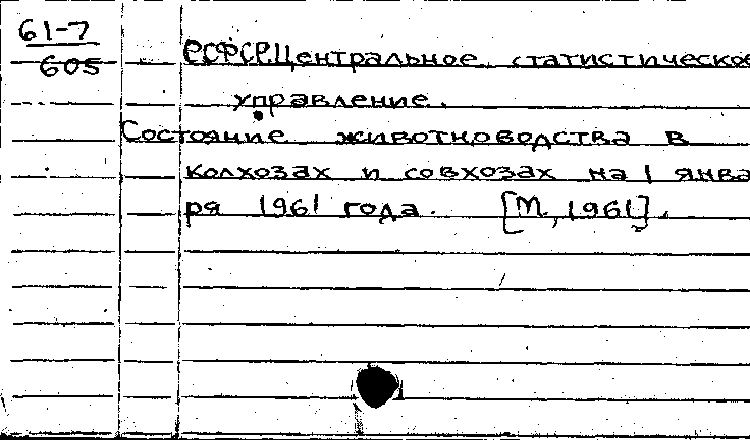 61-7
605
РСФСР. Центральное статистическое
управление.
Состояние животноводства в
колхозах и совхозах на 1 янва
ря 1961 года. [М, 1961].